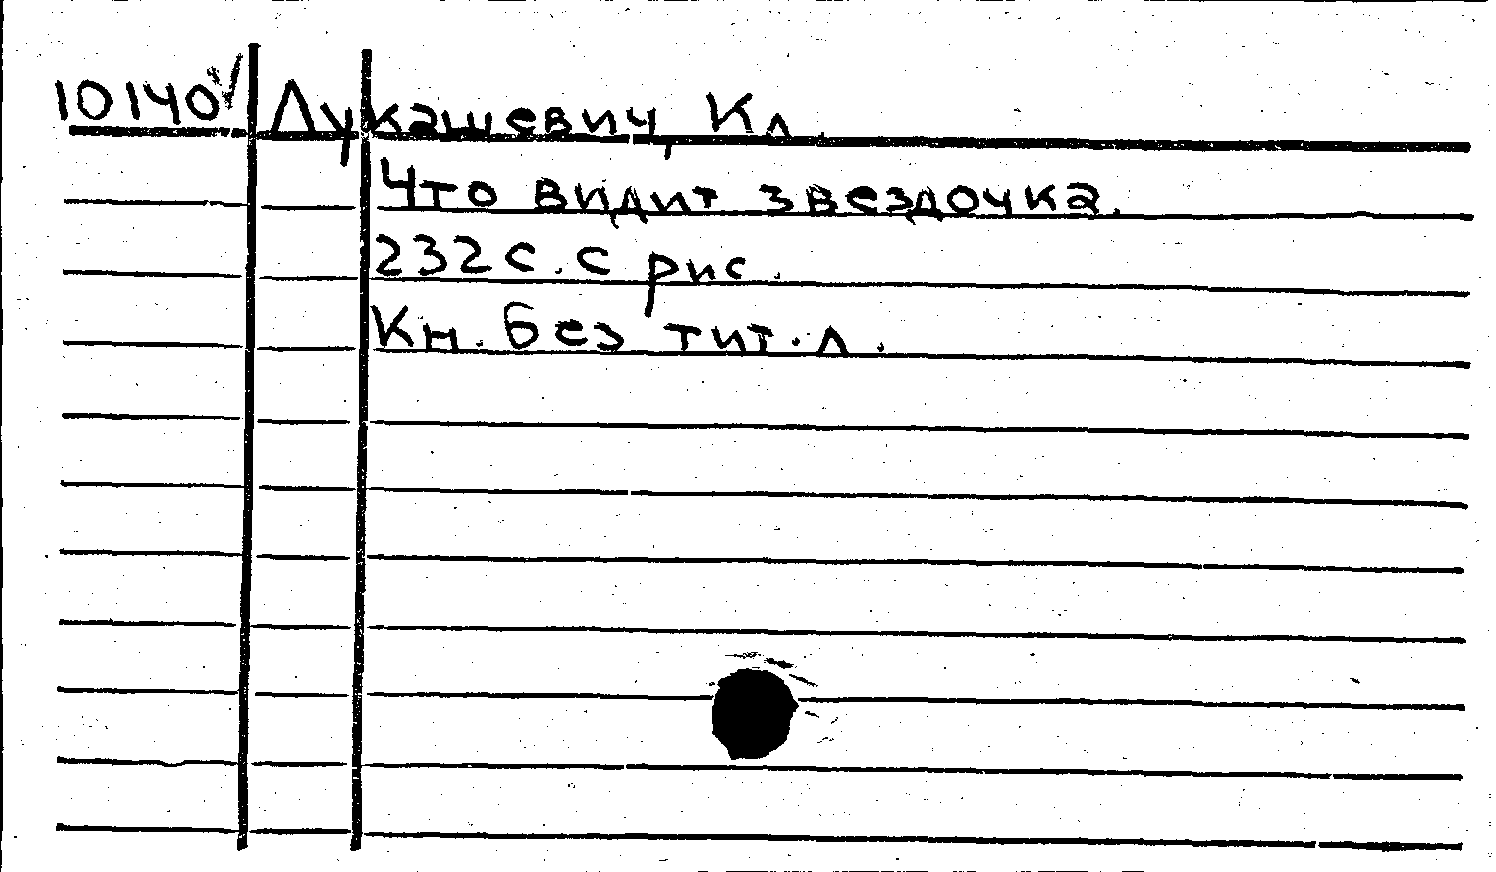 10140 Лукашевич, Кл.
Что видит звездочка.
232 с. с рис.
Кн. без тит. л.